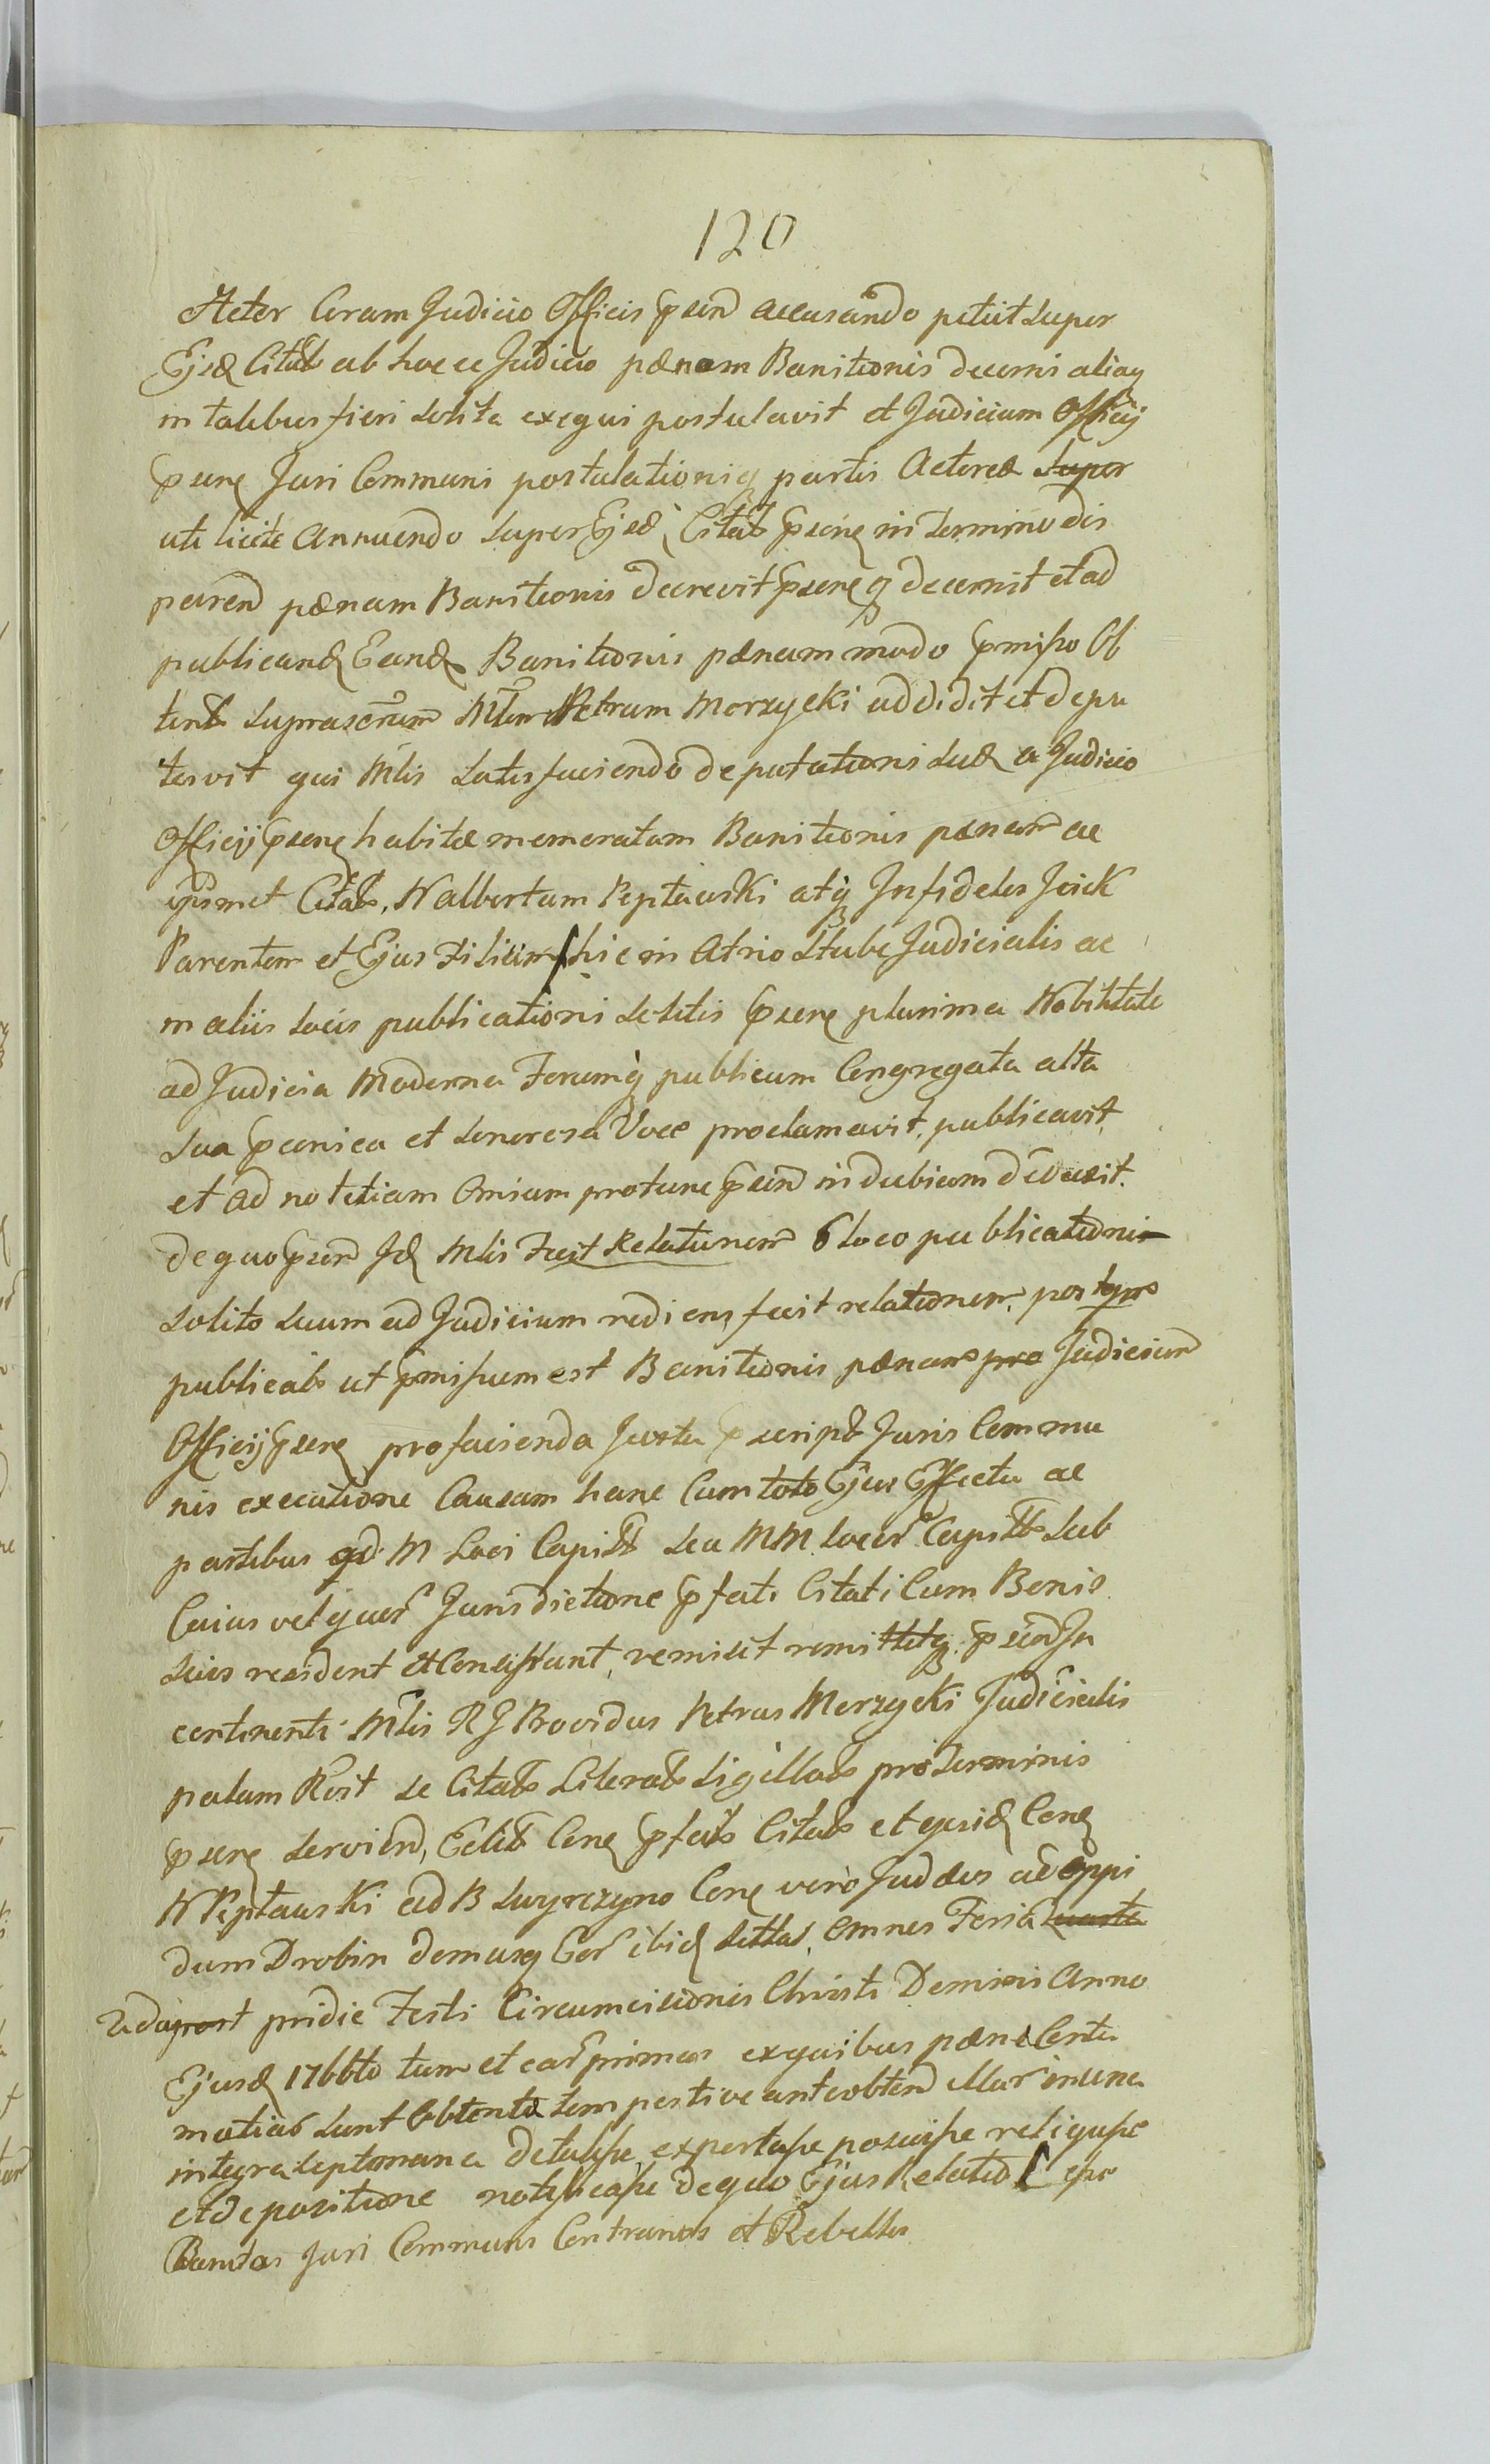 120
Actor Coram Judicio Officii psen accusando petiit super
Ejsd Citato ab hocce Judicio pænam Banitionis decerni aliaq
in talibus fieri solita exequi postulavit et Judicium Officij
psens Juri Communi postulationiq partis Actoreæ super
uti licitæ Annuendo super Ejsd Citato psens in Termino dis
paren pænam Banitionis decrevit psensq decernit et ad
publicand Eand Banitionis pænam modo pmisso Ob
tent suprascrum Mlem Petrum Morzycki addidit et depu
tavit qui Mlis satisfaciendo deputationi suæ a Judicio
Officij psens habitæ memoratam Banitionis pænam ac
ipsmet Citatos, N Albertum Peptawski atq Infideles Jcick
Parentem et Ejus Filium hic in Atrio Stubæ Judicialis ac
in aliis locis publicationi solitis psens plurima Nobilitate
ad Judicia Moderna Forumq publicum Congregata alta
sua pconica et sonorosa Voce proclamavit, publicavit,
et ad notitiam Omnium protunc psen indubiam deduxit.
de quo psen Jd Mlis Fecit Relationem 6 loco publicationis
solito suum ad Judicium rediens fecit relationem, post
publicato ut pmissum est Banitionis pænam pro Judicium
Officij psens pro facienda Juxta pscript Juris Commu
nis executione Causam hanc Cum toto Ejus Effectu ac
partibus ad M Loci Capitt seu MM locor Capitt sub
Cuius vel quor Jurisdictione pfati Citati Cum Bonis
suis resident et Consistunt, remisit remittitq. psen In
continenti Mlis RJ Providus Petrus Morzycki Judicialis
palam Rvit se Citatos Literatos sigillatos pro Terminis
psens servien, Cone pfatos Citatos et quid Cone
N Peptawski ad B Swyrczyno Cone vero Judæos ad Oppi
dum Drobin domusq Eor ibid sittas, Omnes Feria quarta
pridie Festi Circumcisionis Christi Domini Anno
Ejusd 1766to tum et eas primas ex quibus pænæ Contu
matiar sunt Obtentæ tempestive ante obten illar in una
integra septimana detulisse, exportasse posuisse reliquisse
et de positione notificasse de quo Ejus Relatio
Banitos Juri Communi Contrarios et Rebelles